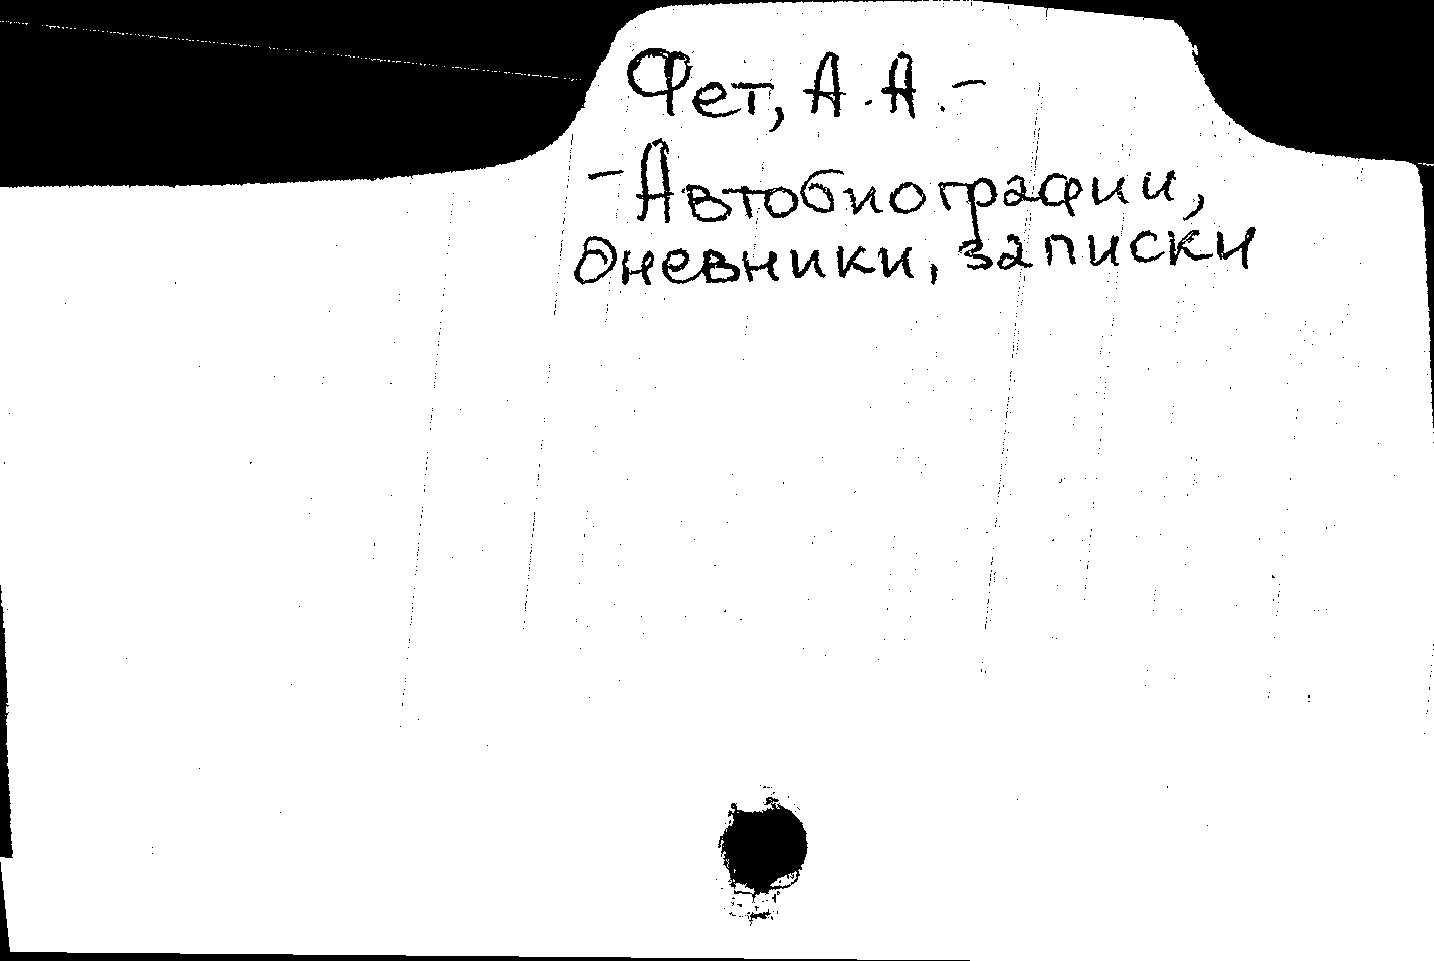 Фет, А.А.-
-Автобиографии,
дневники, записки